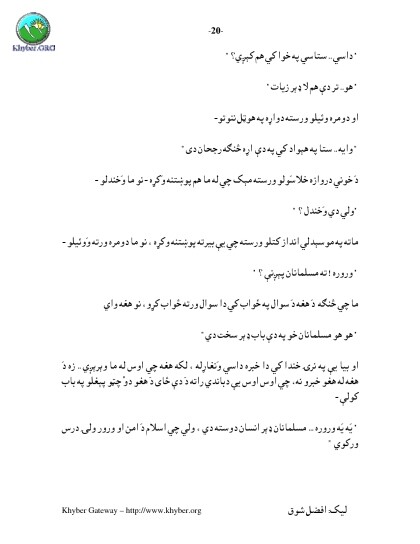 Khyber.ORG
-20-
" داسي.. ستاسي په خوا کي هم کېږي؟ "
" هو.. تر دې هم لا ډېر زيات "
او دومره وئيلو ورسته دواړه په هوټل ننوتو-
" وايه.. ستا په هېواد کي په دې اړه څنګه رجحان دی "
دَ خوني دروازه خلاسَولو ورسته مېک چي له ما هم پوښتنه وکړه - نو ما وَخندلو -
" ولي دي وَخندل ؟ "
ماته په موسېدلي انداز کتلو ورسته چي يې بېرته پوښتنه وکړه ، نو ما دومره ورته وَوئيلو -
" وروره ! ته مسلمانان پېږنې ؟ "
ما چي څنګه دَ هغه دَ سوال په ځواب کي دا سوال ورته ځواب کړو، نو هغه واي
" هو هو مسلمانان خو په دې باب ډېر سخت دي "
او بيا يې په نرۍ خندا کي دا خبره داسي وَتغارله ، لکه هغه چي اوس له ما وېرېږي.. زه دَ
هغه له هغو خبرو نه، چي اوس اوس يې دباندي راته دَ دې ځای دَ هغو دوٌ چټو پېغلو په باب
کولې-
" يَه يَه وروره .. مسلمانان ډېر انسان دوسته دي ، ولي چي اسلام دَ امن او رور ولۍ درس
ورکوي "
ليک: افضل شوق
Khyber Gateway – http://www.khyber.org